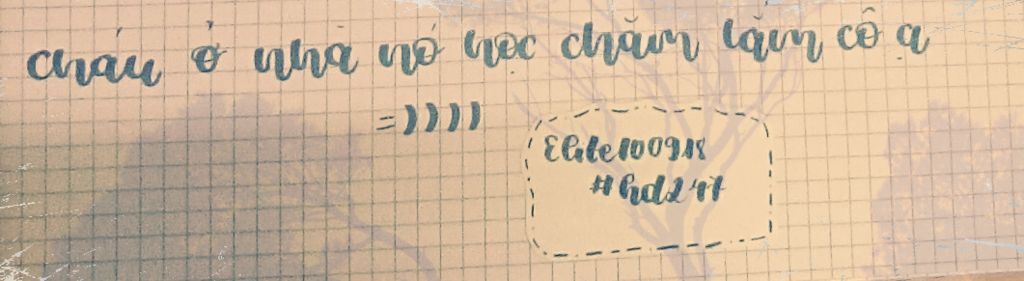 cháu ở nhà nó học chăm lắm cô ạ
=))))
Elite100918
#hd247